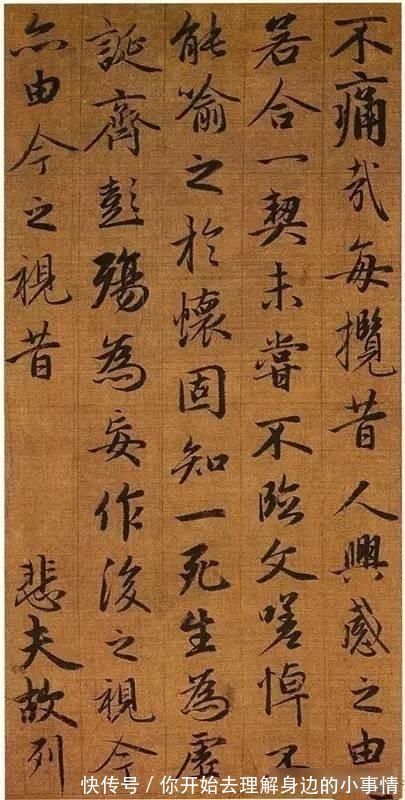 不痛哉每攬昔人興感之由
若合一契未嘗不臨文嗟悼不
能喻之於懷固知一死生為虛
誕齊彭殤為妄作後之視今
亦由今之視昔 悲夫故列
快传号 / 你开始去理解身边的小事情